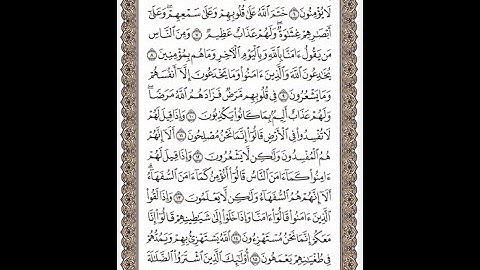 لَا يُؤْمِنُونَ ٦ خَتَمَ اللَّهُ عَلَىٰ قُلُوبِهِمْ وَعَلَىٰ سَمْعِهِمْ ۖ وَعَلَىٰ
أَبْصَارِهِمْ غِشَاوَةٌ ۖ وَلَهُمْ عَذَابٌ عَظِيمٌ ٧ وَمِنَ النَّاسِ
مَن يَقُولُ ءَامَنَّا بِاللَّهِ وَبِالْيَوْمِ الْآخِرِ وَمَا هُم بِمُؤْمِنِينَ ٨
يُخَادِعُونَ اللَّهَ وَالَّذِينَ ءَامَنُوا وَمَا يَخْدَعُونَ إِلَّا أَنفُسَهُمْ
وَمَا يَشْعُرُونَ ٩ فِي قُلُوبِهِم مَّرَضٌ فَزَادَهُمُ اللَّهُ مَرَضًا ۖ
وَلَهُمْ عَذَابٌ أَلِيمٌ بِمَا كَانُوا يَكْذِبُونَ ١٠ وَإِذَا قِيلَ لَهُمْ
لَا تُفْسِدُوا فِي الْأَرْضِ قَالُوا إِنَّمَا نَحْنُ مُصْلِحُونَ ١١ أَلَا إِنَّهُمْ
هُمُ الْمُفْسِدُونَ وَلَٰكِن لَّا يَشْعُرُونَ ١٢ وَإِذَا قِيلَ لَهُمْ
ءَامِنُوا كَمَا ءَامَنَ النَّاسُ قَالُوا أَنُؤْمِنُ كَمَا ءَامَنَ السُّفَهَاءُ ۗ
أَلَا إِنَّهُمْ هُمُ السُّفَهَاءُ وَلَٰكِن لَّا يَعْلَمُونَ ١٣ وَإِذَا لَقُوا
الَّذِينَ ءَامَنُوا قَالُوا ءَامَنَّا وَإِذَا خَلَوْا إِلَىٰ شَيَاطِينِهِمْ قَالُوا إِنَّا
مَعَكُمْ إِنَّمَا نَحْنُ مُسْتَهْزِءُونَ ١٤ اللَّهُ يَسْتَهْزِئُ بِهِمْ وَيَمُدُّهُمْ
فِي طُغْيَانِهِمْ يَعْمَهُونَ ١٥ أُولَٰئِكَ الَّذِينَ اشْتَرَوُا الضَّلَالَةَ